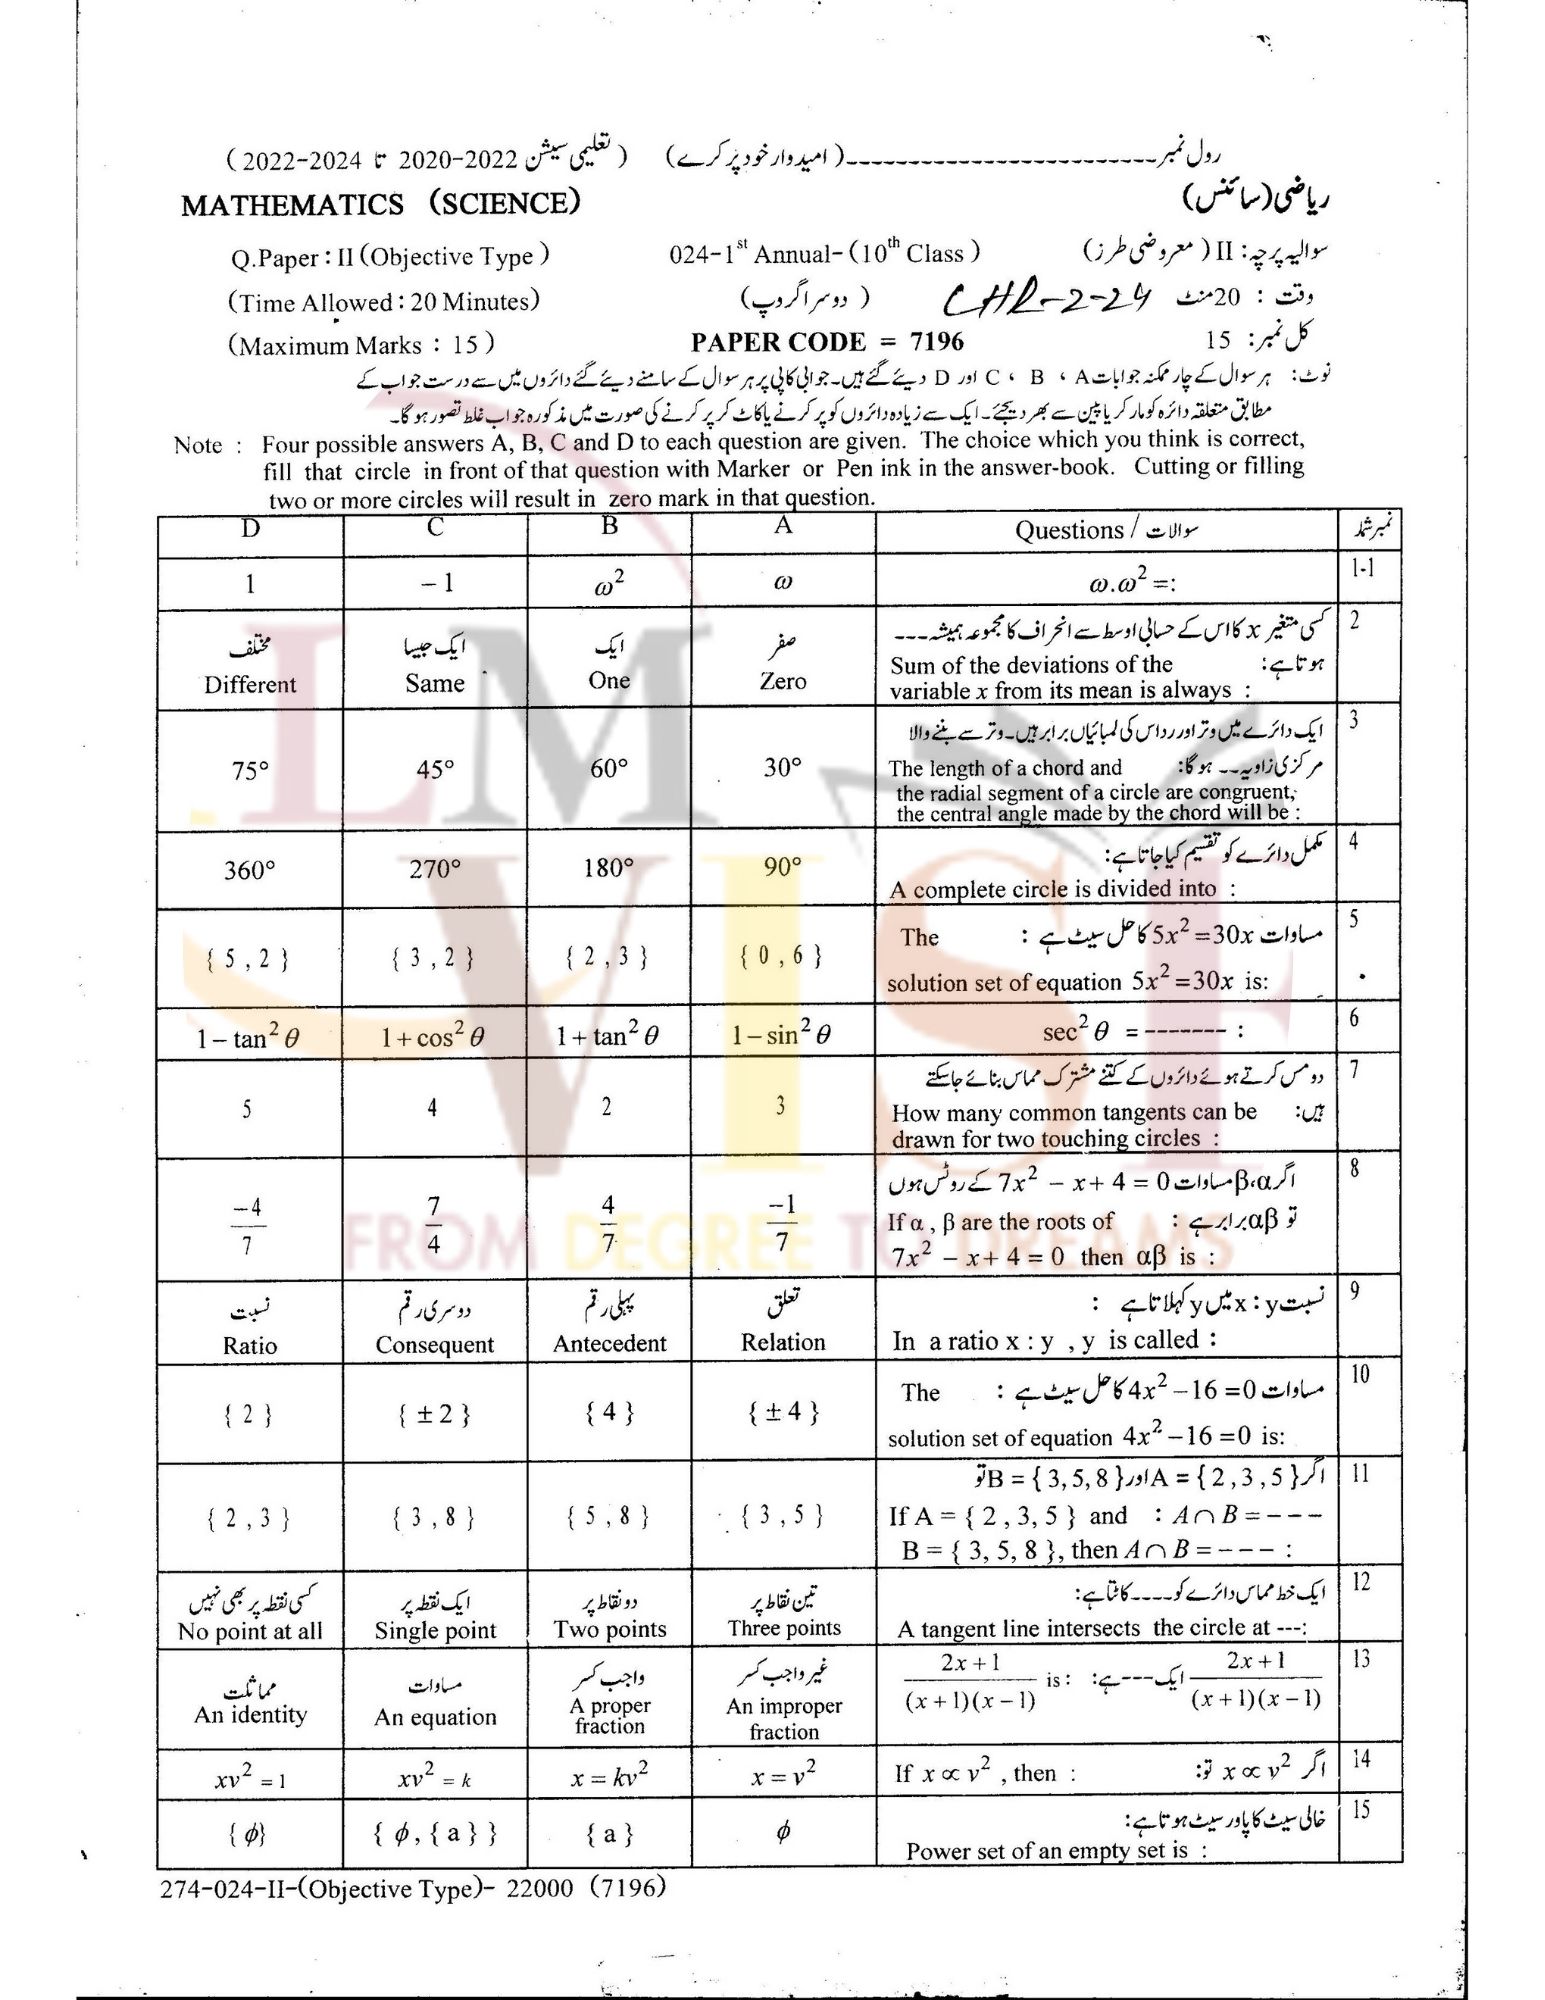 رول نمبر------------------------(امیدوار خود پُر کرے) (تعلیمی سیشن 2022-2020 تا 2024-2022)
MATHEMATICS (SCIENCE) ریاضی (سائنس)
Q.Paper : II (Objective Type) 024-1st Annual-(10th Class) سوالیہ پرچہ: II (معروضی طرز)
(Time Allowed : 20 Minutes) (دوسرا گروپ) CHR-2-24 وقت : 20 منٹ
(Maximum Marks : 15) PAPER CODE = 7196 کل نمبر: 15
نوٹ: ہر سوال کے چار ممکنہ جوابات A ، B ، C اور D دیئے گئے ہیں۔ جوابی کاپی پر ہر سوال کے سامنے دیئے گئے دائروں میں سے درست جواب کے
مطابق متعلقہ دائرہ کو مارکر یا پین سے بھر دیجئے۔ ایک سے زیادہ دائروں کو پر کرنے یا کاٹ کر پر کرنے کی صورت میں مذکورہ جواب غلط تصور ہو گا۔
Note : Four possible answers A, B, C and D to each question are given. The choice which you think is correct,
fill that circle in front of that question with Marker or Pen ink in the answer-book. Cutting or filling
two or more circles will result in zero mark in that question.
D C B A Questions / سوالات نمبر شمار
1 −1 ω² ω ω.ω² =: 1-1
کسی متغیر x کا اس کے حسابی اوسط سے انحراف کا مجموعہ ہمیشہ--- 2
مختلف ایک جیسا ایک صفر ہوتا ہے:
Different Same One Zero Sum of the deviations of the
variable x from its mean is always :
ایک دائرے میں وتر اور رداس کی لمبائیاں برابر ہیں۔ وتر سے بننے والا 3
مرکزی زاویہ-- ہو گا:
75° 45° 60° 30° The length of a chord and
the radial segment of a circle are congruent,
the central angle made by the chord will be :
مکمل دائرے کو تقسیم کیا جاتا ہے: 4
360° 270° 180° 90° A complete circle is divided into :
مساوات 5x² =30x کا حل سیٹ ہے : The 5
{ 5 , 2 } { 3 , 2 } { 2 , 3 } { 0 , 6 } solution set of equation 5x² =30x is:
1−tan² θ 1+cos² θ 1+tan² θ 1−sin² θ sec² θ = ------- : 6
دو مس کرتے ہوئے دائروں کے کتنے مشترک مماس بنائے جا سکتے 7
ہیں:
5 4 2 3 How many common tangents can be
drawn for two touching circles :
اگر β،α مساوات 7x² − x+ 4 = 0 کے روٹس ہوں 8
تو αβ برابر ہے :
−4/7 7/4 4/7 −1/7 If α , β are the roots of
7x² − x+ 4 = 0 then αβ is :
نسبت x : y میں y کہلاتا ہے : 9
نسبت دوسری رقم پہلی رقم تعلق
Ratio Consequent Antecedent Relation In a ratio x : y , y is called :
مساوات 4x² −16 =0 کا حل سیٹ ہے : The 10
{ 2 } { ±2 } { 4 } { ±4 } solution set of equation 4x² −16 =0 is:
اگر A = { 2 , 3 , 5 } اور B = { 3, 5, 8 } تو 11
{ 2 , 3 } { 3 , 8 } { 5 , 8 } { 3 , 5 } If A = { 2 , 3, 5 } and : A∩B=---
B = { 3, 5, 8 }, then A∩B=--- :
ایک خط مماس دائرے کو---- کاٹتا ہے: 12
کسی نقطہ پر بھی نہیں ایک نقطہ پر دو نقاط پر تین نقاط پر
No point at all Single point Two points Three points A tangent line intersects the circle at ---:
(2x+1)/((x+1)(x−1)) is : (2x+1)/((x+1)(x−1)) ایک --- ہے: 13
مماثلت مساوات واجب کسر غیر واجب کسر
An identity An equation A proper fraction An improper fraction
xv² = 1 xv² = k x = kv² x = v² If x ∝ v² , then : اگر x ∝ v² تو: 14
خالی سیٹ کا پاور سیٹ ہوتا ہے: 15
{ ϕ} { ϕ , { a } } { a } ϕ Power set of an empty set is :
274-024-II-(Objective Type)- 22000 (7196)
LM
VISF
FROM DEGREE TO DREAMS